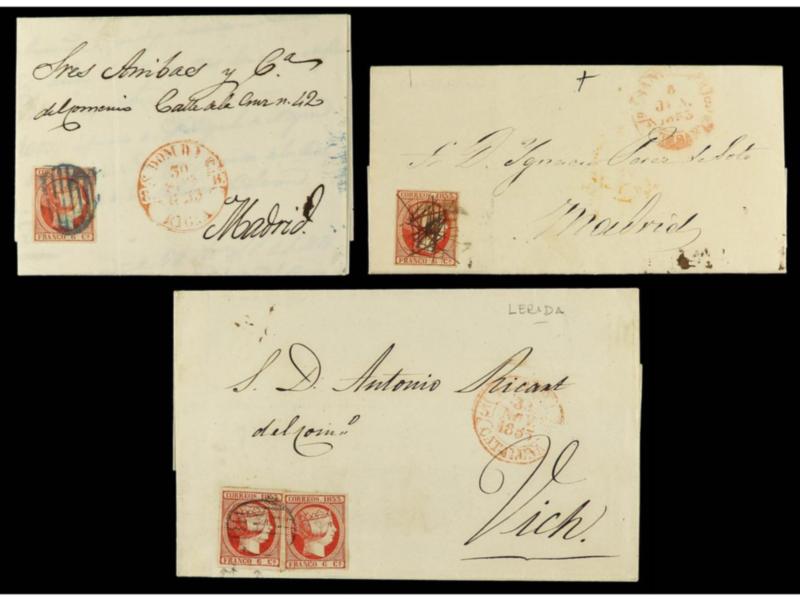 Sres Arribas y Cª
del comercio Calle de la Cruz n. 42
Sto DOM. D. L. C.
30
1853
RIOJA
Madrid
FRANCO 6 Cs
8
JUN.
1853
S. D. Ignacio Perez de Soto
Madrid
CORREOS. 1853
FRANCO 6 Cs
LERIDA
S. D. Antonio Ricart
del comº
31
NOV
1853
CATALUÑA
Vich.
CORREOS. 1853 CORREOS. 1853
FRANCO 6 Cs FRANCO 6 Cs